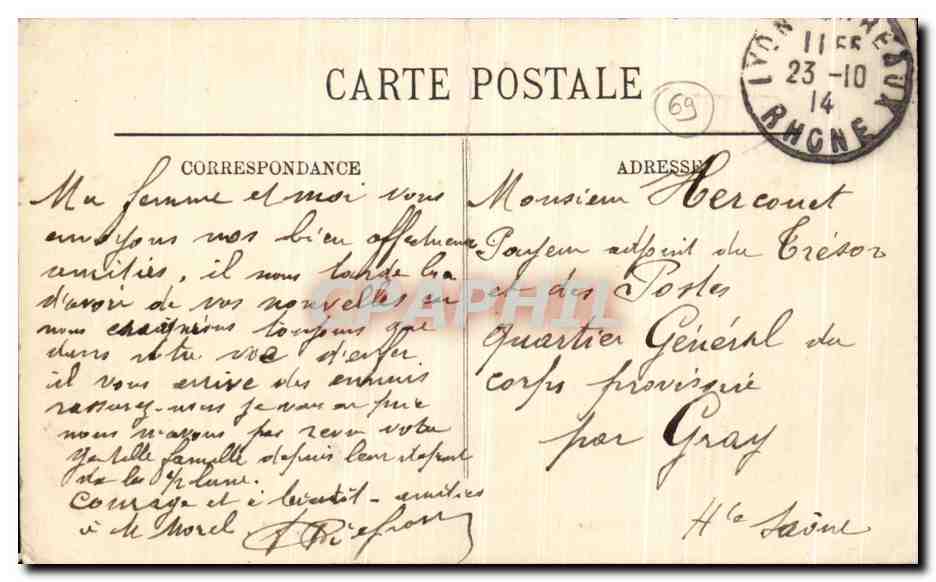 CARTE POSTALE
69
LYON
1155
23-10
14
RHONE
CORRESPONDANCE
Ma femme et moi vous
envoyons nos bien affectueuses
amitiés, il nous tarde
d'avoir de vos nouvelles
nous craignons toujours que
dans votre vie d'enfer
il vous arrive des ennuis
rassurez-nous je vous en prie
nous n'avons pas revu votre
gentille famille depuis leur départ
de la
courage et à bientôt - amitiés
à M Morel
ADRESSE
Monsieur Hercouet
Payeur adjoint du Trésor
et des Postes
Quartier Général du
corps provisoire
par Gray
Hte Saône
CPAPHIL